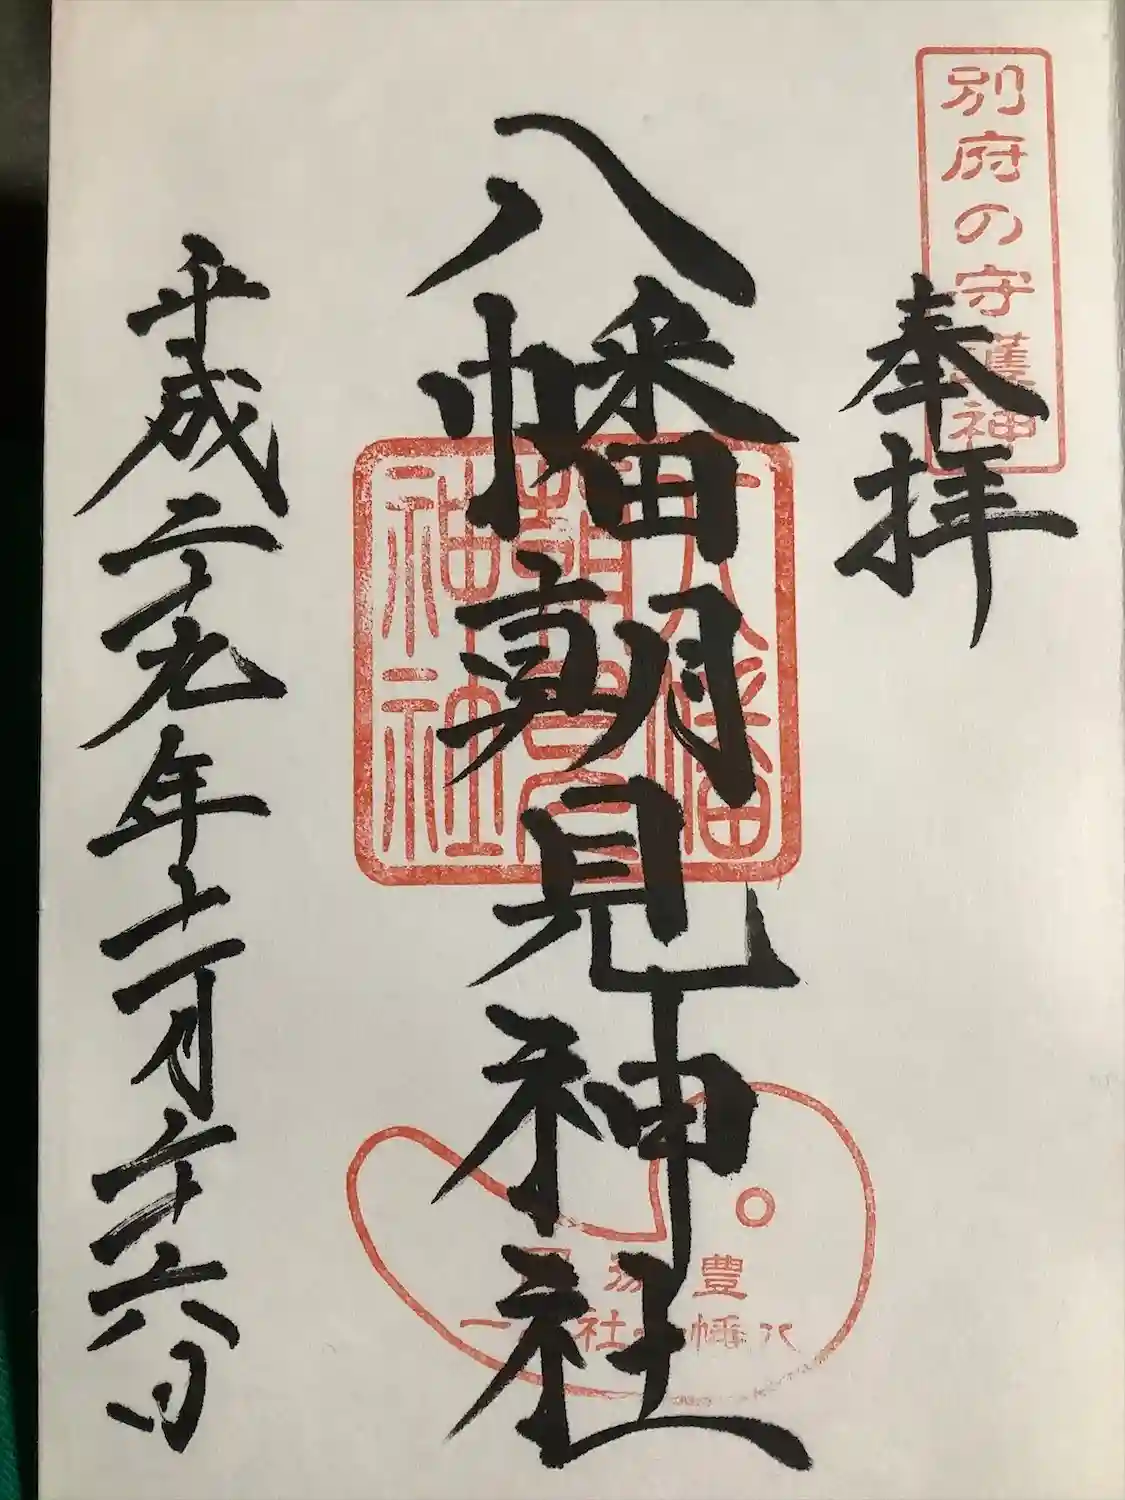 別府の守護神
奉拝
八幡朝見神社
八幡朝見神社
豊
八幡 社 一
平成二十九年十一月二十六日